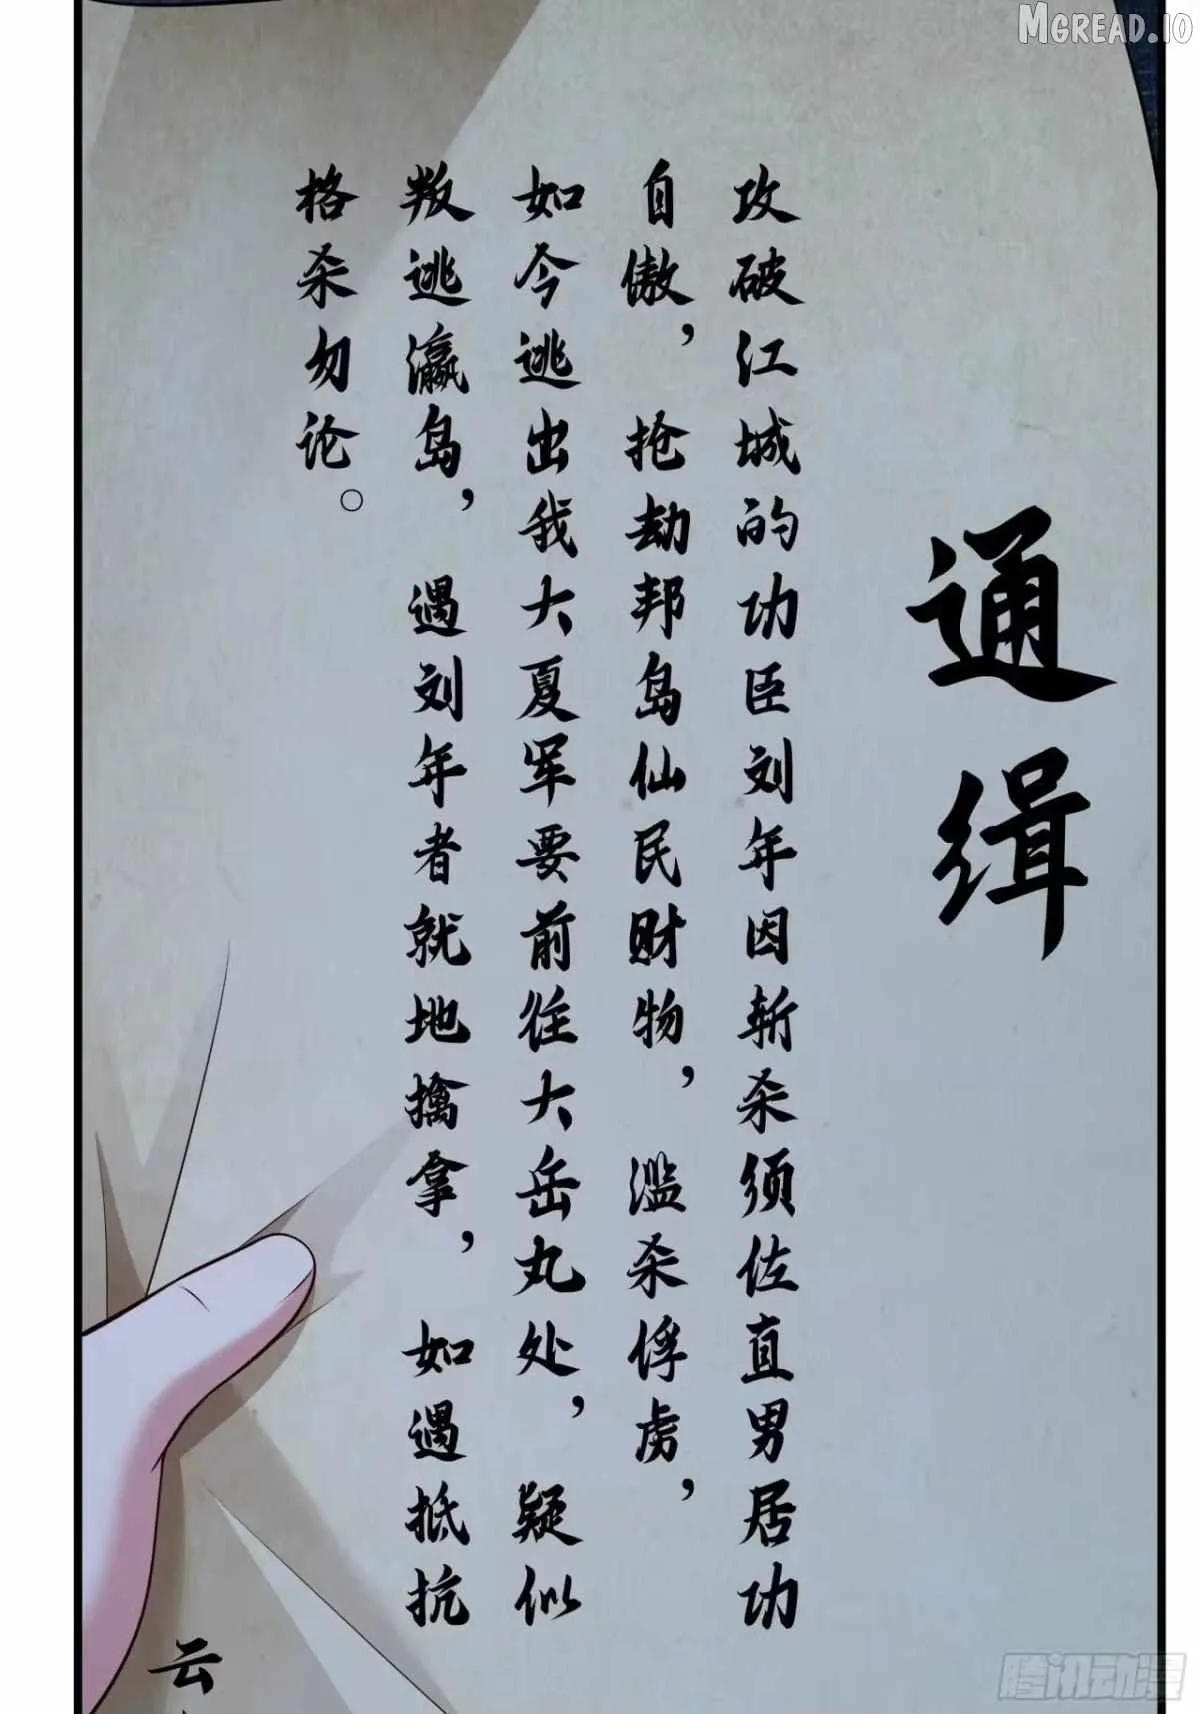 MGREAD.IO
通缉
攻破江城的功臣刘年因斩杀须佐直男居功
自傲，抢劫邦岛仙民财物，滥杀俘虏，
如今逃出我大夏军要前往大岳丸处，疑似
叛逃瀛岛，遇刘年者就地擒拿，如遇抵抗
格杀勿论。
云
腾讯动漫